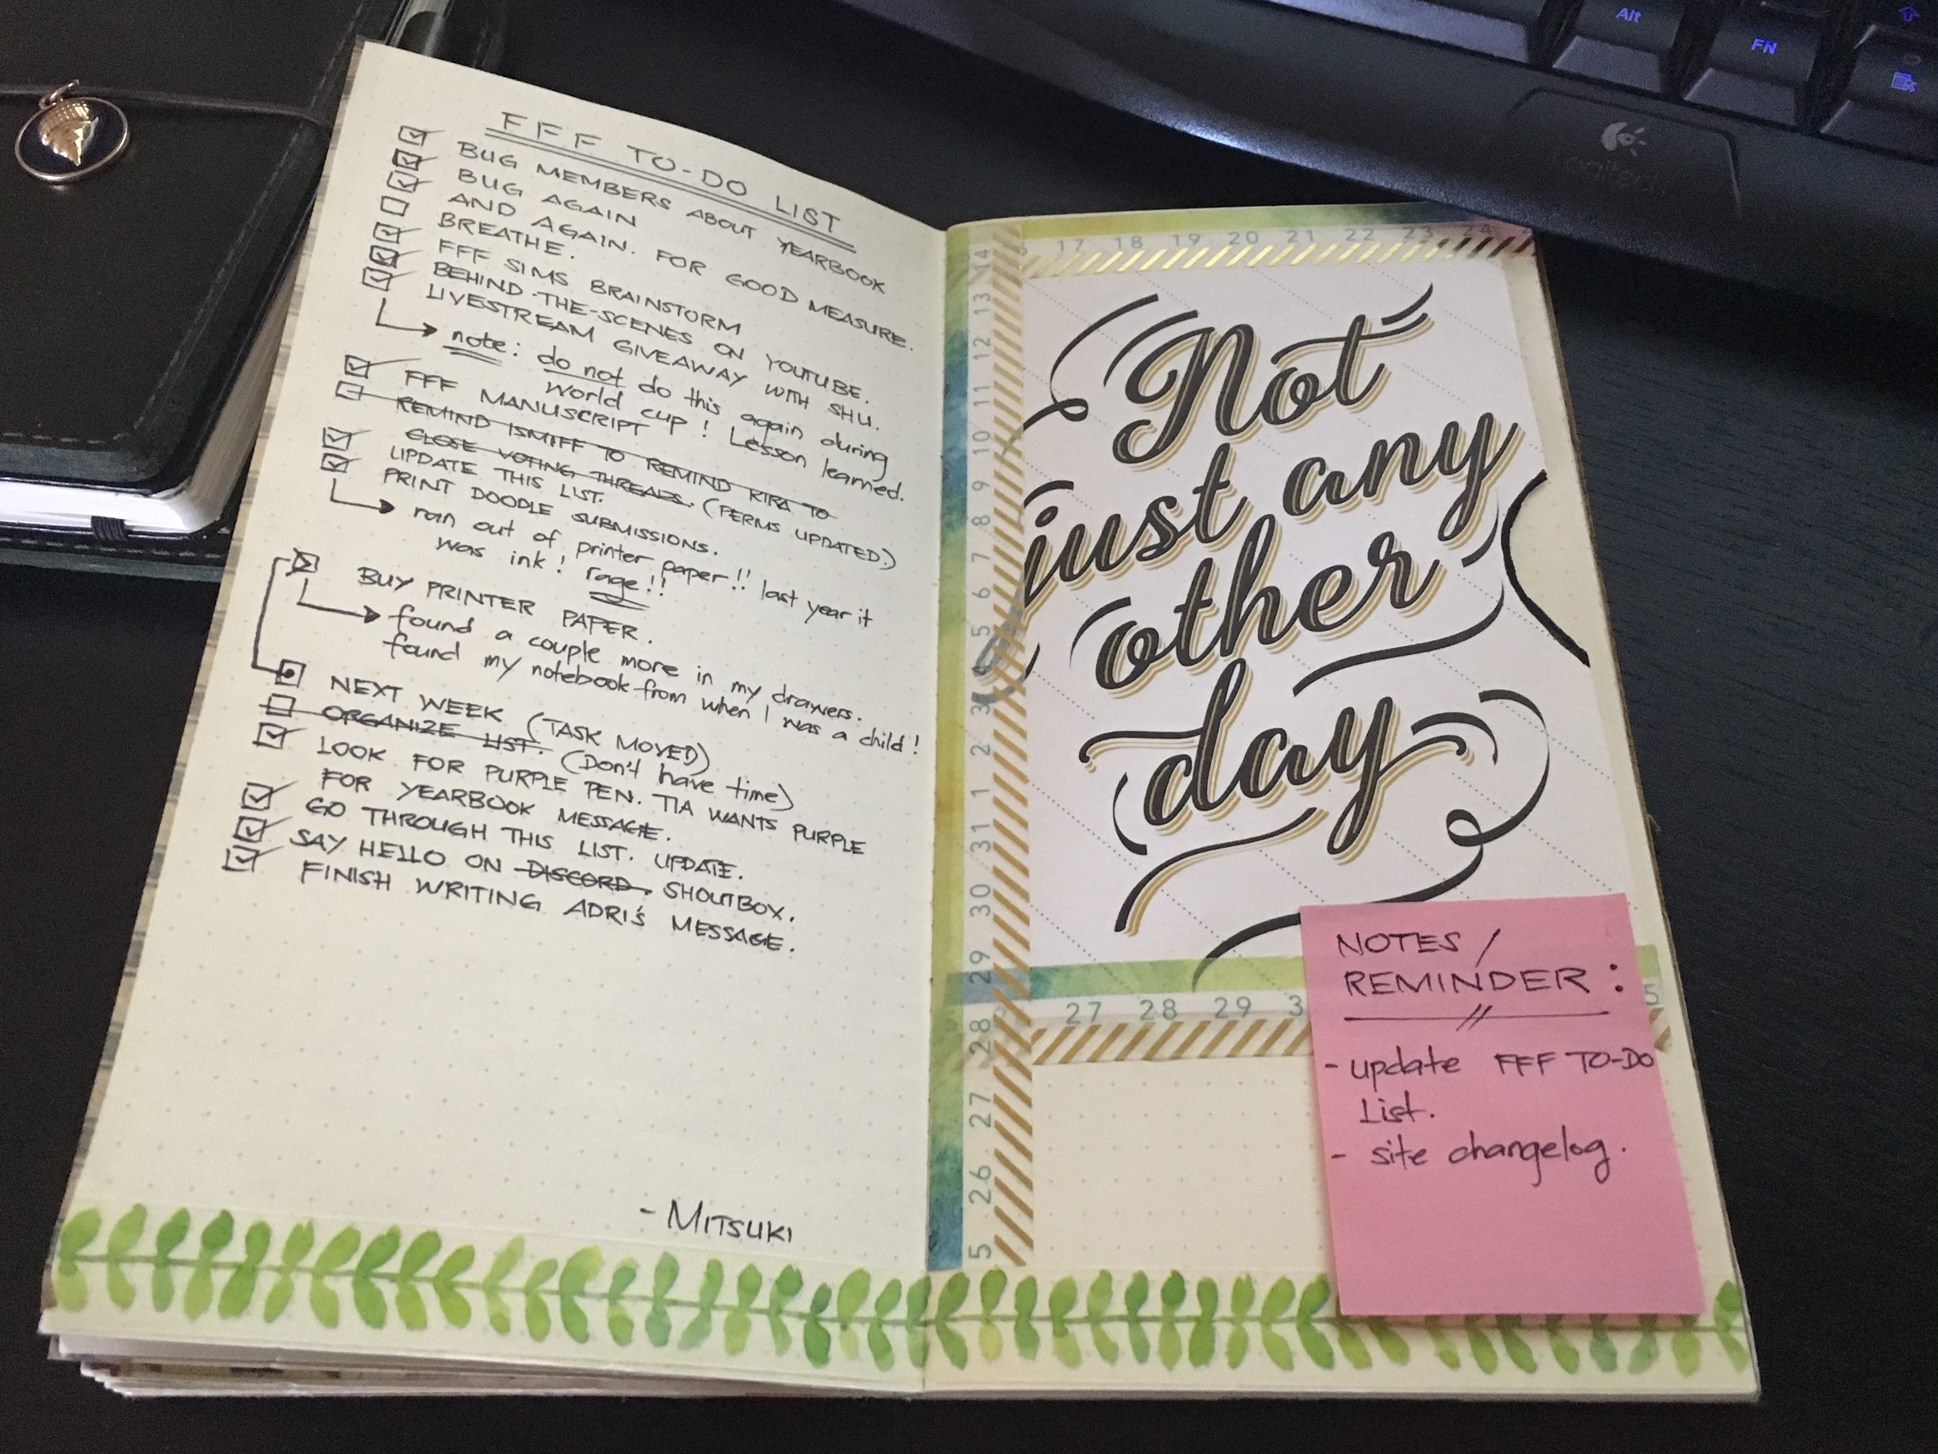 FFF TO-DO LIST
BUG MEMBERS ABOUT YEARBOOK
BUG AGAIN
AND AGAIN. FOR GOOD MEASURE.
BREATHE.
FFF SIMS BRAINSTORM
BEHIND-THE-SCENES ON YOUTUBE.
LIVESTREAM GIVEAWAY WITH SHU.
note: do not do this again during
world cup! Lesson learned.
FFF MANUSCRIPT
REMIND ISMIFF TO REMIND KIRA TO
CLOSE VOTING THREADS. (PERMS UPDATED)
UPDATE THIS LIST.
PRINT DOODLE SUBMISSIONS.
ran out of printer paper!! last year it
was ink! rage!!
BUY PRINTER PAPER.
found a couple more in my drawers.
found my notebook from when I was a child!
NEXT WEEK (TASK MOVED)
ORGANIZE LIST. (Don't have time)
LOOK FOR PURPLE PEN. TIA WANTS PURPLE
FOR YEARBOOK MESSAGE.
GO THROUGH THIS LIST. UPDATE.
SAY HELLO ON DISCORD. SHOUTBOX.
FINISH WRITING ADRI'S MESSAGE.
- MITSUKI
17 18 19 20 21 22 23 24
14
13
12
11
10
9
8
7
6
5
4
3
2
1
31
30
29
28
27
26
5
Not
just any
other
day
27 28 29 3
5
NOTES/
REMINDER:
- update FFF TO-DO
List.
- site changelog.
Alt
FN
Logitech